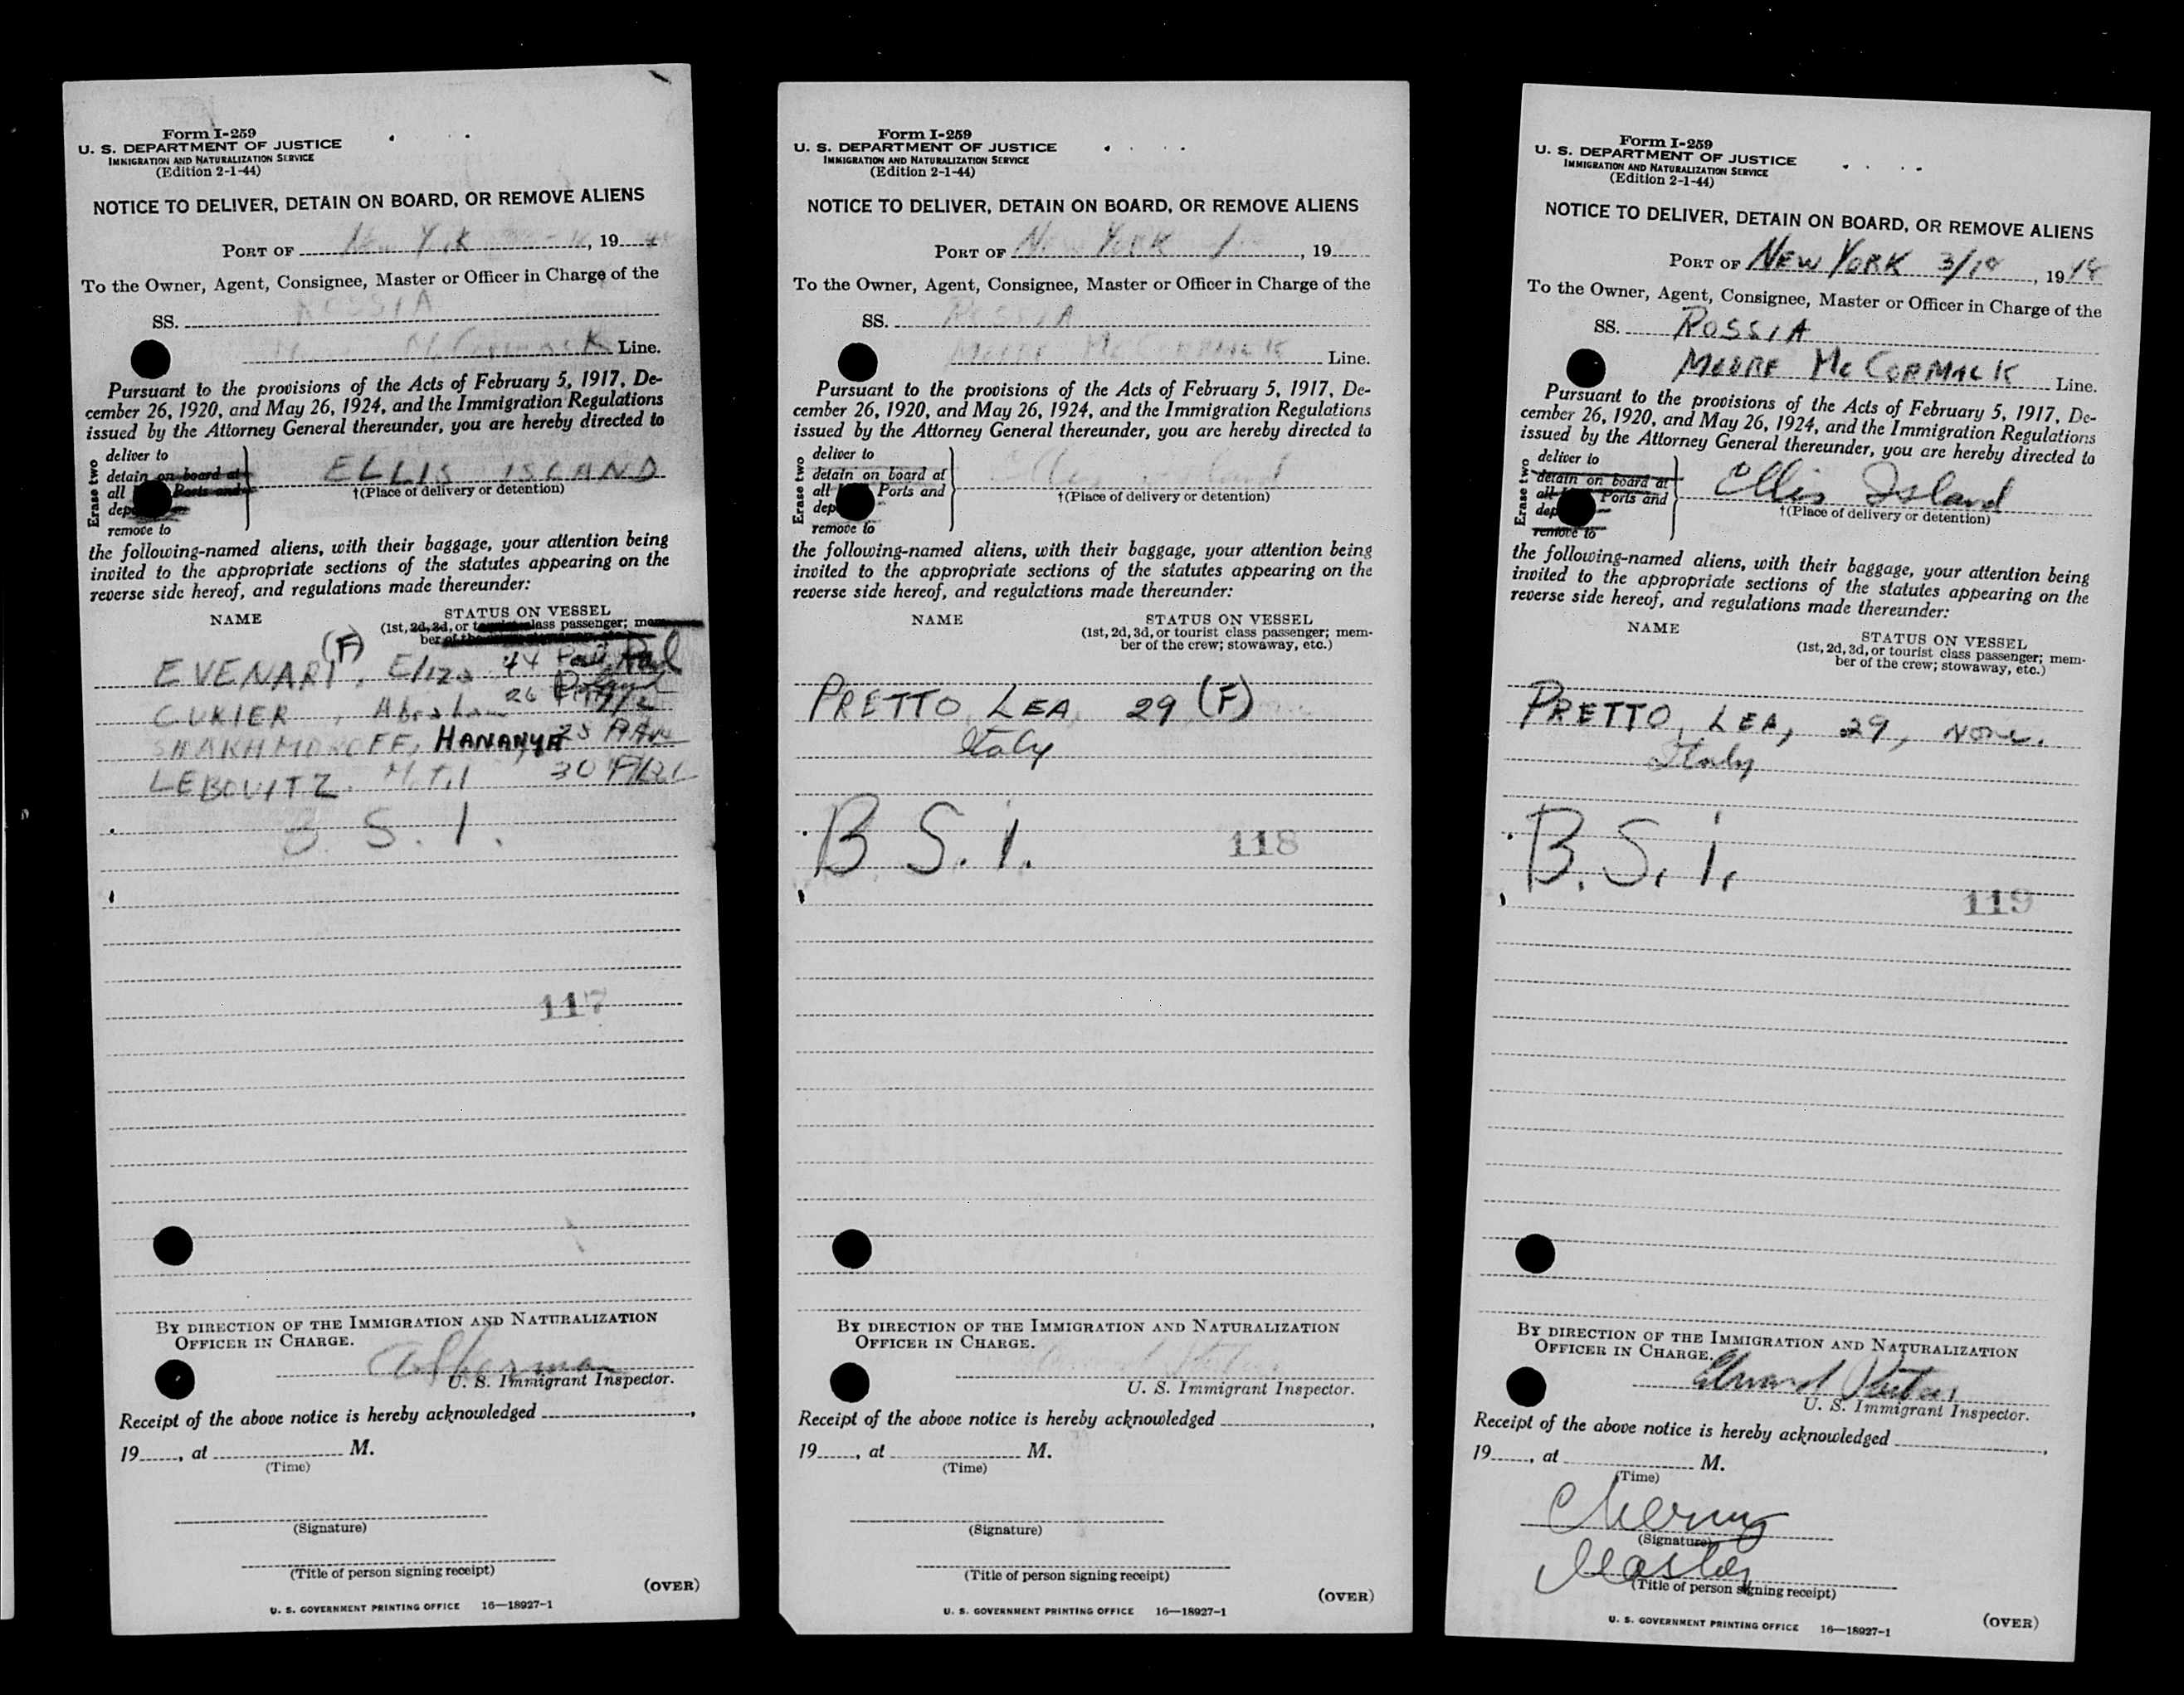 Form I-259
U. S. DEPARTMENT OF JUSTICE
IMMIGRATION AND NATURALIZATION SERVICE
(Edition 2-1-44)
NOTICE TO DELIVER, DETAIN ON BOARD, OR REMOVE ALIENS
PORT OF New York , 19
To the Owner, Agent, Consignee, Master or Officer in Charge of the
SS. ROSSIA
McCormack Line.
Pursuant to the provisions of the Acts of February 5, 1917, De-
cember 26, 1920, and May 26, 1924, and the Immigration Regulations
issued by the Attorney General thereunder, you are hereby directed to
Erase two
deliver to
detain on board at
all Ports and
dep
remove to
ELLIS ISLAND
†(Place of delivery or detention)
the following-named aliens, with their baggage, your attention being
invited to the appropriate sections of the statutes appearing on the
reverse side hereof, and regulations made thereunder:
NAME STATUS ON VESSEL
(1st, 2d, 3d, or tourist class passenger; mem-
ber of the
EVENARI, (F) Eliza 44
CUKIER, Abraham 26
SHAKHMOROFF, HANANYA 25
LEBOVITZ, 30
B S. I.
117
BY DIRECTION OF THE IMMIGRATION AND NATURALIZATION
OFFICER IN CHARGE.
U. S. Immigrant Inspector.
Receipt of the above notice is hereby acknowledged ,
19 , at M.
(Time)
(Signature)
(Title of person signing receipt)
(OVER)
U. S. GOVERNMENT PRINTING OFFICE 16—18927-1
Form I-259
U. S. DEPARTMENT OF JUSTICE
IMMIGRATION AND NATURALIZATION SERVICE
(Edition 2-1-44)
NOTICE TO DELIVER, DETAIN ON BOARD, OR REMOVE ALIENS
PORT OF NEW YORK , 19
To the Owner, Agent, Consignee, Master or Officer in Charge of the
SS. ROSSIA
MOORE McCORMACK Line.
Pursuant to the provisions of the Acts of February 5, 1917, De-
cember 26, 1920, and May 26, 1924, and the Immigration Regulations
issued by the Attorney General thereunder, you are hereby directed to
Erase two
deliver to
detain on board at
all Ports and
dep
remove to
Ellis Island
†(Place of delivery or detention)
the following-named aliens, with their baggage, your attention being
invited to the appropriate sections of the statutes appearing on the
reverse side hereof, and regulations made thereunder:
NAME STATUS ON VESSEL
(1st, 2d, 3d, or tourist class passenger; mem-
ber of the crew; stowaway, etc.)
PRETTO, LEA 29 (F)
Italy
B S. i.
118
BY DIRECTION OF THE IMMIGRATION AND NATURALIZATION
OFFICER IN CHARGE.
U. S. Immigrant Inspector.
Receipt of the above notice is hereby acknowledged ,
19 , at M.
(Time)
(Signature)
(Title of person signing receipt)
(OVER)
U. S. GOVERNMENT PRINTING OFFICE 16—18927-1
Form I-259
U. S. DEPARTMENT OF JUSTICE
IMMIGRATION AND NATURALIZATION SERVICE
(Edition 2-1-44)
NOTICE TO DELIVER, DETAIN ON BOARD, OR REMOVE ALIENS
PORT OF NEW YORK , 19
To the Owner, Agent, Consignee, Master or Officer in Charge of the
SS. ROSSIA
MOORE McCORMACK Line.
Pursuant to the provisions of the Acts of February 5, 1917, De-
cember 26, 1920, and May 26, 1924, and the Immigration Regulations
issued by the Attorney General thereunder, you are hereby directed to
Erase two
deliver to
detain on board at
all Ports and
dep
remove to
Ellis Island
†(Place of delivery or detention)
the following-named aliens, with their baggage, your attention being
invited to the appropriate sections of the statutes appearing on the
reverse side hereof, and regulations made thereunder:
NAME STATUS ON VESSEL
(1st, 2d, 3d, or tourist class passenger; mem-
ber of the crew; stowaway, etc.)
PRETTO, LEA, 29, None.
Italy
B. S. i.
119
BY DIRECTION OF THE IMMIGRATION AND NATURALIZATION
OFFICER IN CHARGE.
Edward
U. S. Immigrant Inspector.
Receipt of the above notice is hereby acknowledged ,
19 , at M.
(Time)
(Signature)
Master
(Title of person signing receipt)
(OVER)
U. S. GOVERNMENT PRINTING OFFICE 16—18927-1